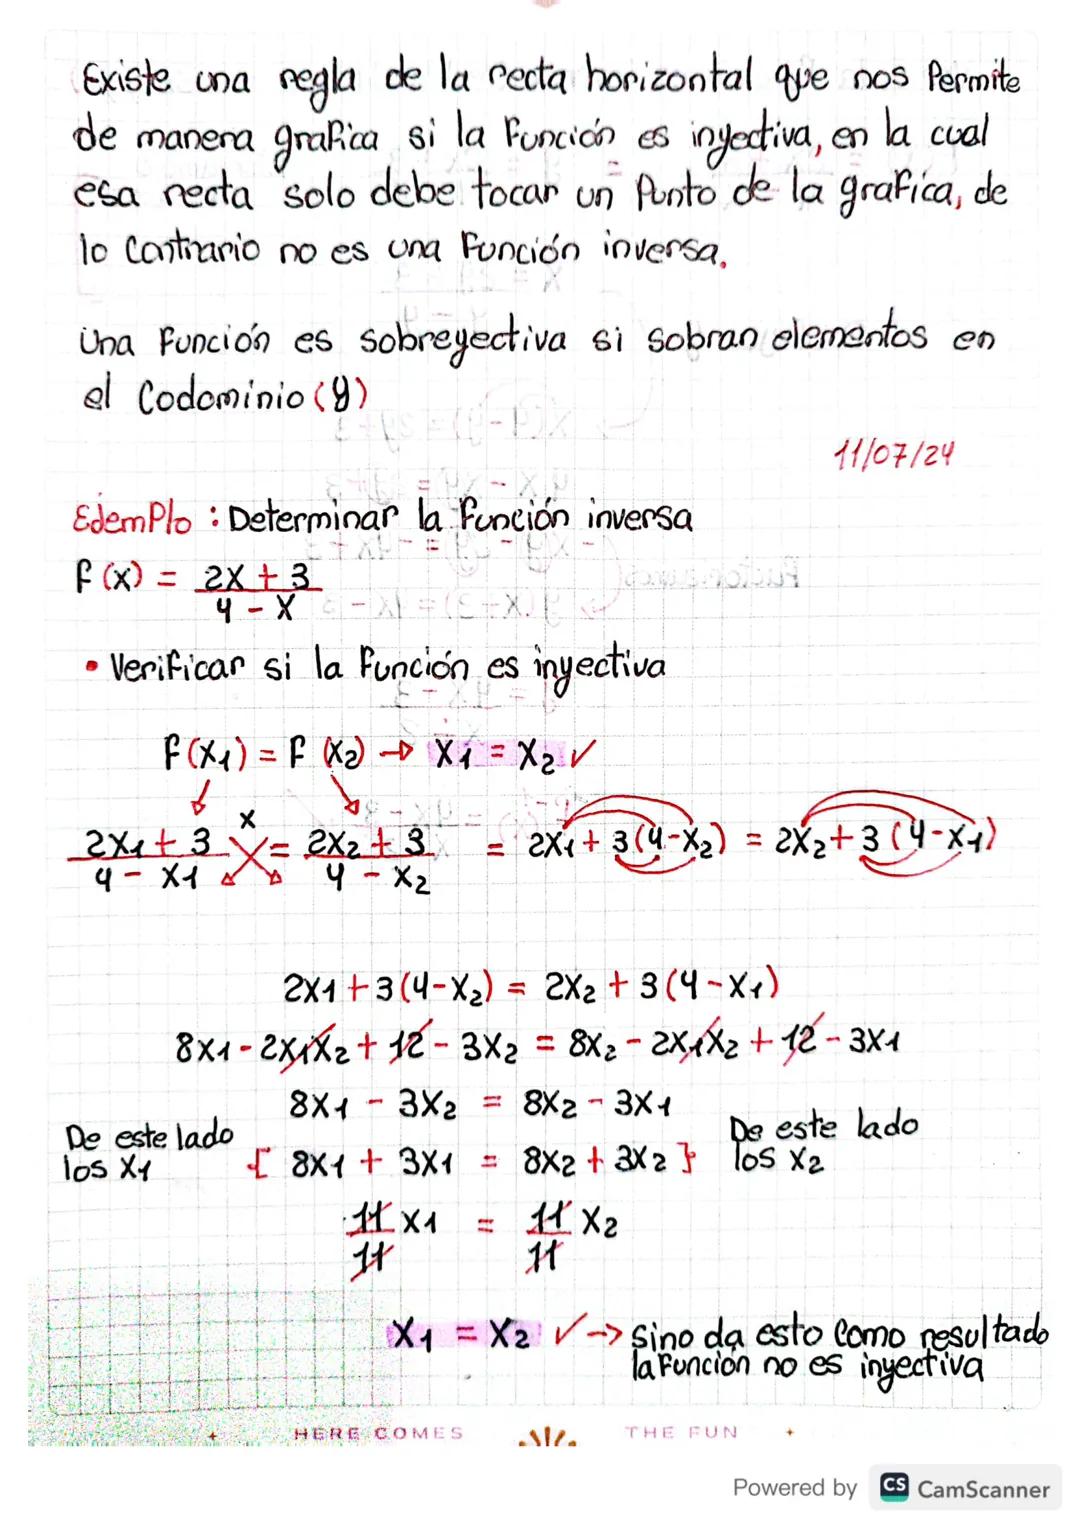 Existe una regla de la recta horizontal que nos Permite
de manera grafica si la Función es inyectiva, en la cual
esa recta solo debe tocar un Punto de la grafica, de
lo Contrario no es una Función inversa.
Una Función es sobreyectiva si sobran elementos en
el Codominio (y)
11/07/24
EdemPlo : Determinar la función inversa
F (x) = 2X + 3
4 - X
• Verificar si la Función es inyectiva
F (X1) = F (X2) → X1 = X2 ✓
X
2X1 + 3 = 2X2 + 3 = 2X1 + 3 (4-X2) = 2X2 + 3 (4-X1)
4 - X1 4 - X2
2X1 + 3 (4-X2) = 2X2 + 3 (4-X1)
8X1 - 2X1X2 + 12 - 3X2 = 8X2 - 2X1X2 + 12 - 3X1
8X1 - 3X2 = 8X2 - 3X1
De este lado
los X1
{ 8X1 + 3X1 = 8X2 + 3X2 }
De este lado
los X2
11 X1 = 11 X2
11 11
X1 = X2 ✓ → Sino da esto Como resultado
la Función no es inyectiva
HERE COMES THE FUN
Powered by CS CamScanner